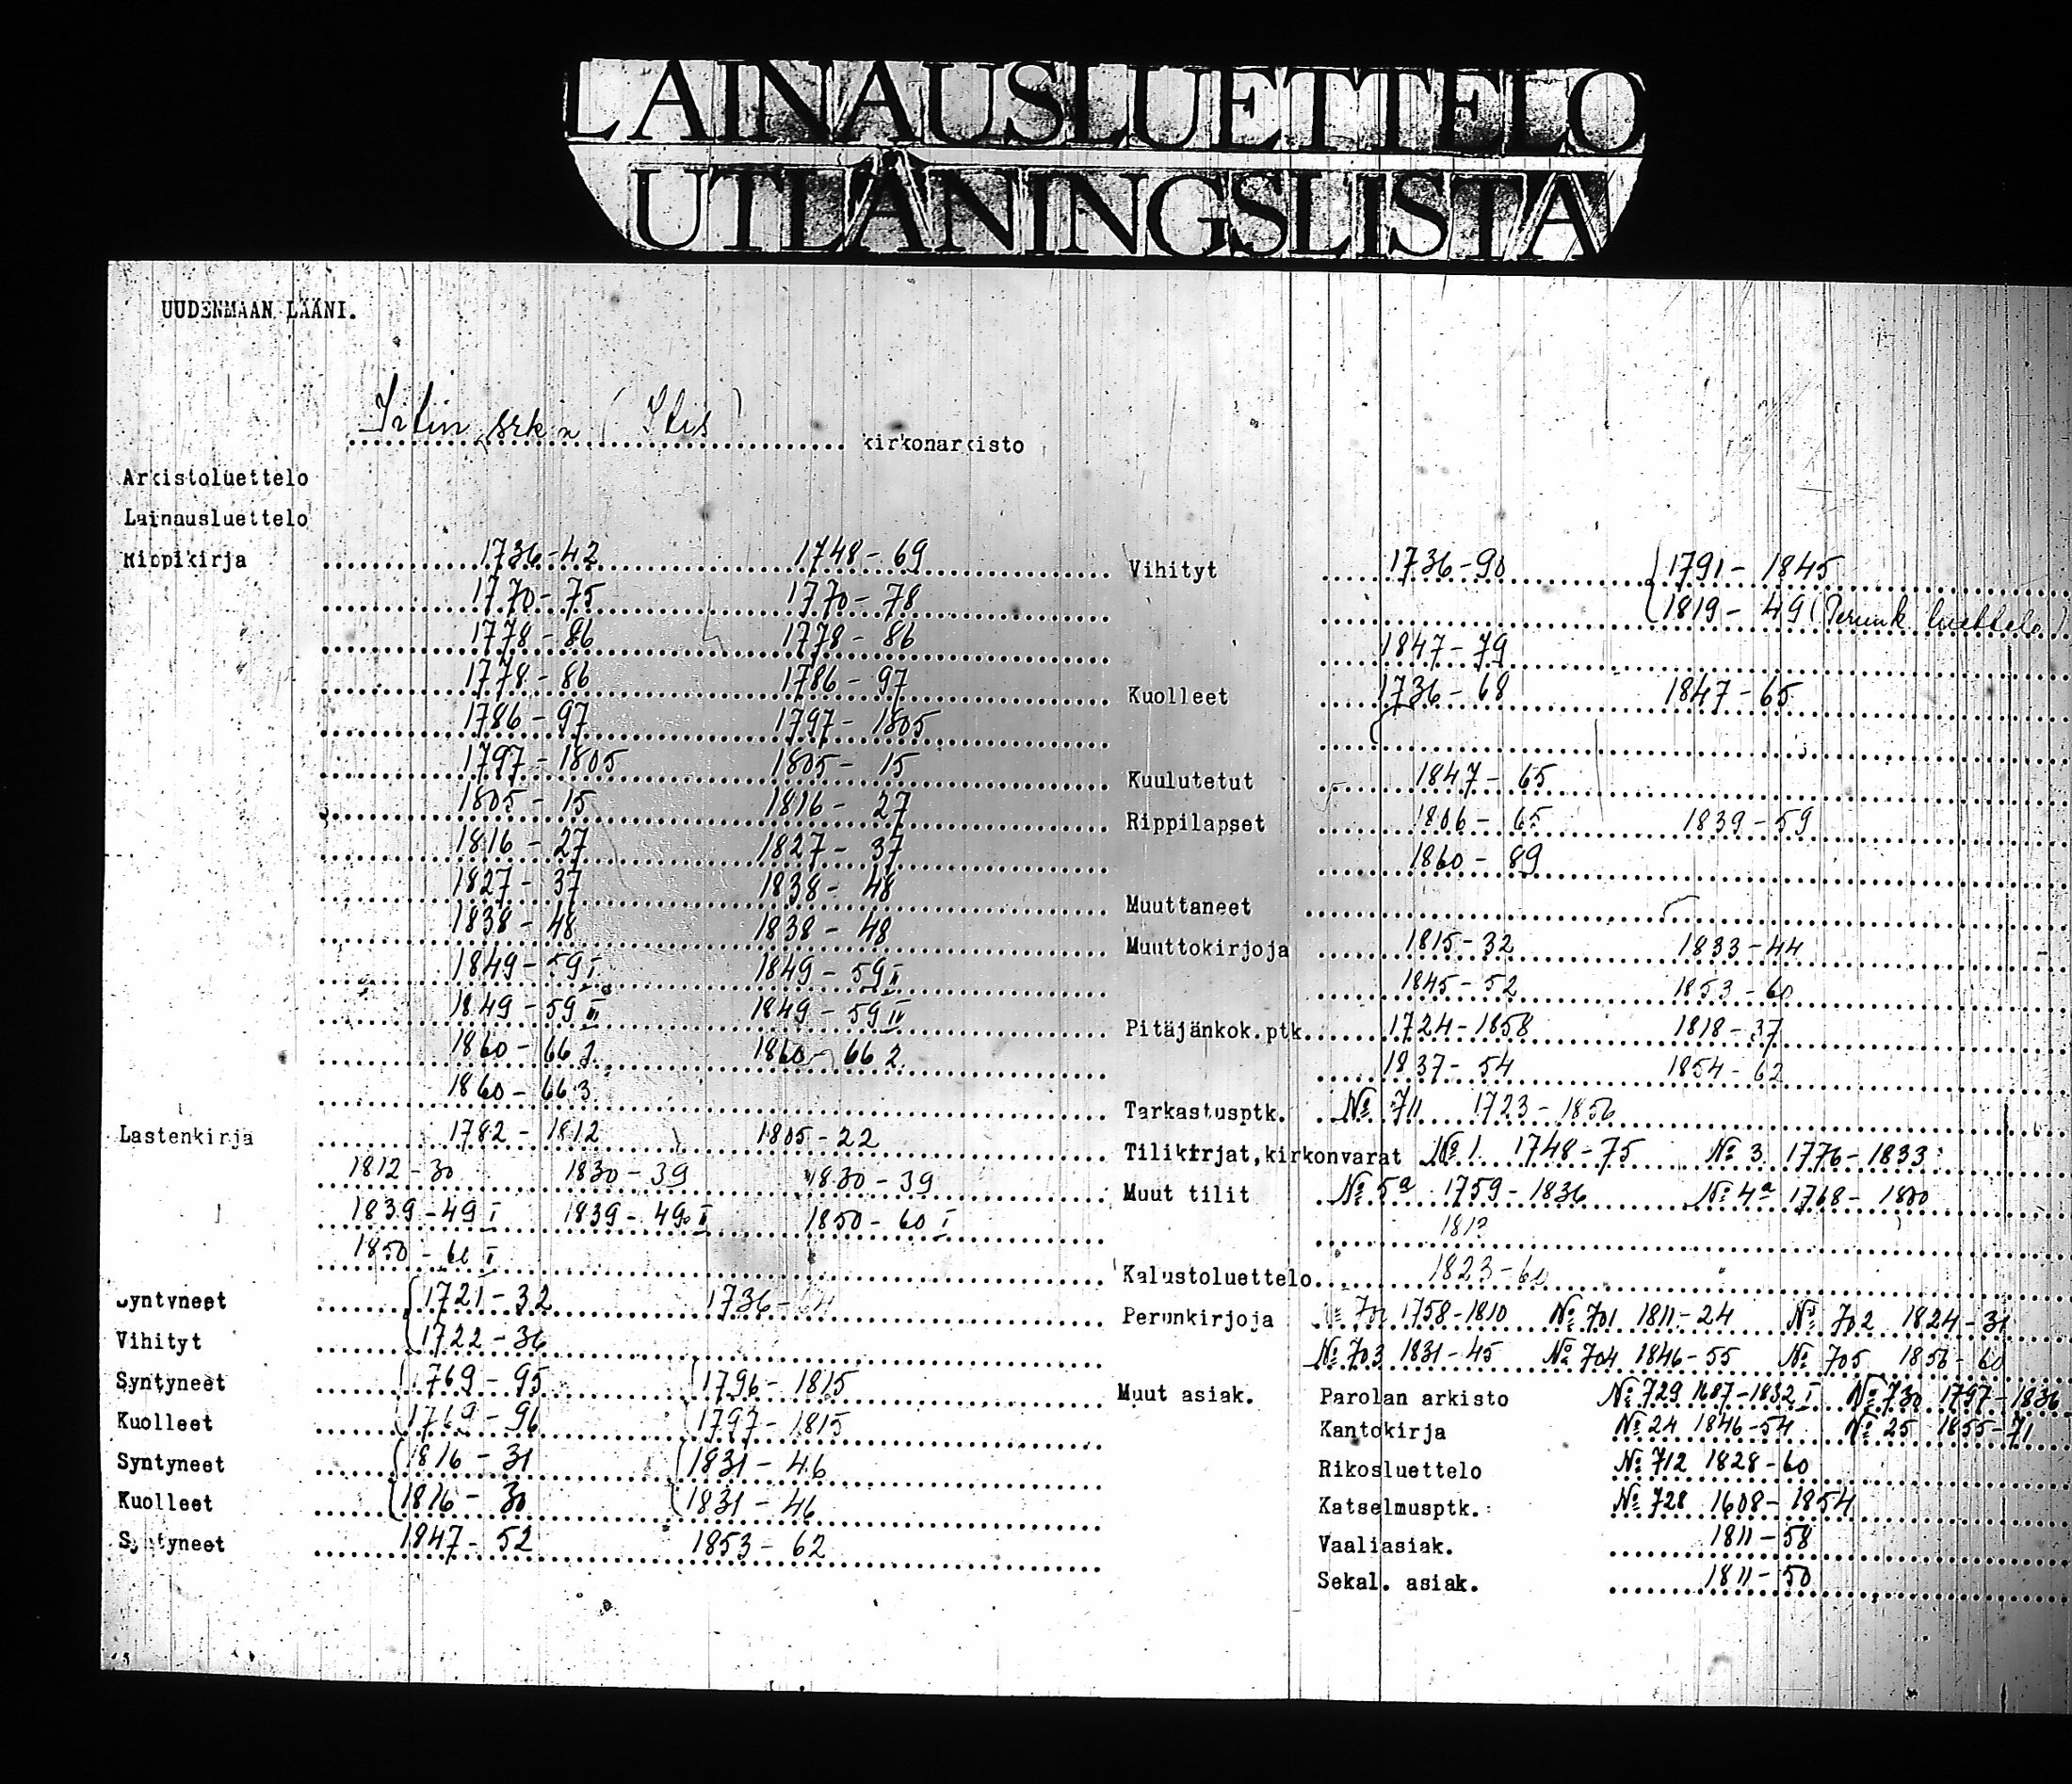 LAINAUSLUETTELO
UTLÅNINGSLISTA
UUDENMAAN LÄÄNI.
Iitin srk:n (Itis) kirkonarkisto
Arkistoluettelo
Lainausluettelo
Rippikirja 1736-42 1748-69
1770-75 1770-78
1778-86 1778-86
1778-86 1786-97
1786-97 1797-1805
1797-1805 1805-15
1805-15 1816-27
1816-27 1827-37
1827-37 1838-48
1838-48 1838-48
1849-59 I 1849-59 II
1849-59 III 1849-59 IV
1860-66 1860-66 2
1860-66 3
Lastenkirja 1782-1812 1805-22
1812-30 1830-39 1830-39
1839-49 I 1839-49 II 1850-60 I
1850-60 I
Syntyneet 1721-32 1736-
Vihityt 1722-36
Syntyneet 1769-95 1796-1815
Kuolleet 1769-96 1797-1815
Syntyneet 1816-31 1831-46
Kuolleet 1816-30 1831-46
Syntyneet 1847-52 1853-62
Vihityt 1736-90 1791-1845
1819-49 (Perunk luettelo)
1847-79
Kuolleet 1736-68 1847-65
Kuulutetut 1847-65
Rippilapset 1806-65 1839-59
1860-89
Muuttaneet
Muuttokirjoja 1815-32 1833-44
1845-52 1853-60
Pitäjänkok.ptk. 1724-1858 1818-37
1837-54 1854-62
Tarkastusptk. № 711 1723-1856
Tilikirjat,kirkonvarat № 1 1748-75 № 3 1776-1833
Muut tilit № 5a 1759-1836 № 4a 1768-
181?
Kalustoluettelo 1823-60
Perunkirjoja 1758-1810 № 701 1811-24 № 702 1824-31
№ 703 1831-45 № 704 1846-55 № 705 1856-60
Muut asiak. Parolan arkisto № 729 1687-1832 I № 730 1797-1836
Kantokirja № 24 1846-54 № 25 1855-71
Rikosluettelo № 712 1828-60
Katselmusptk. № 728 1608-1854
Vaaliasiak. 1811-58
Sekal. asiak. 1811-50